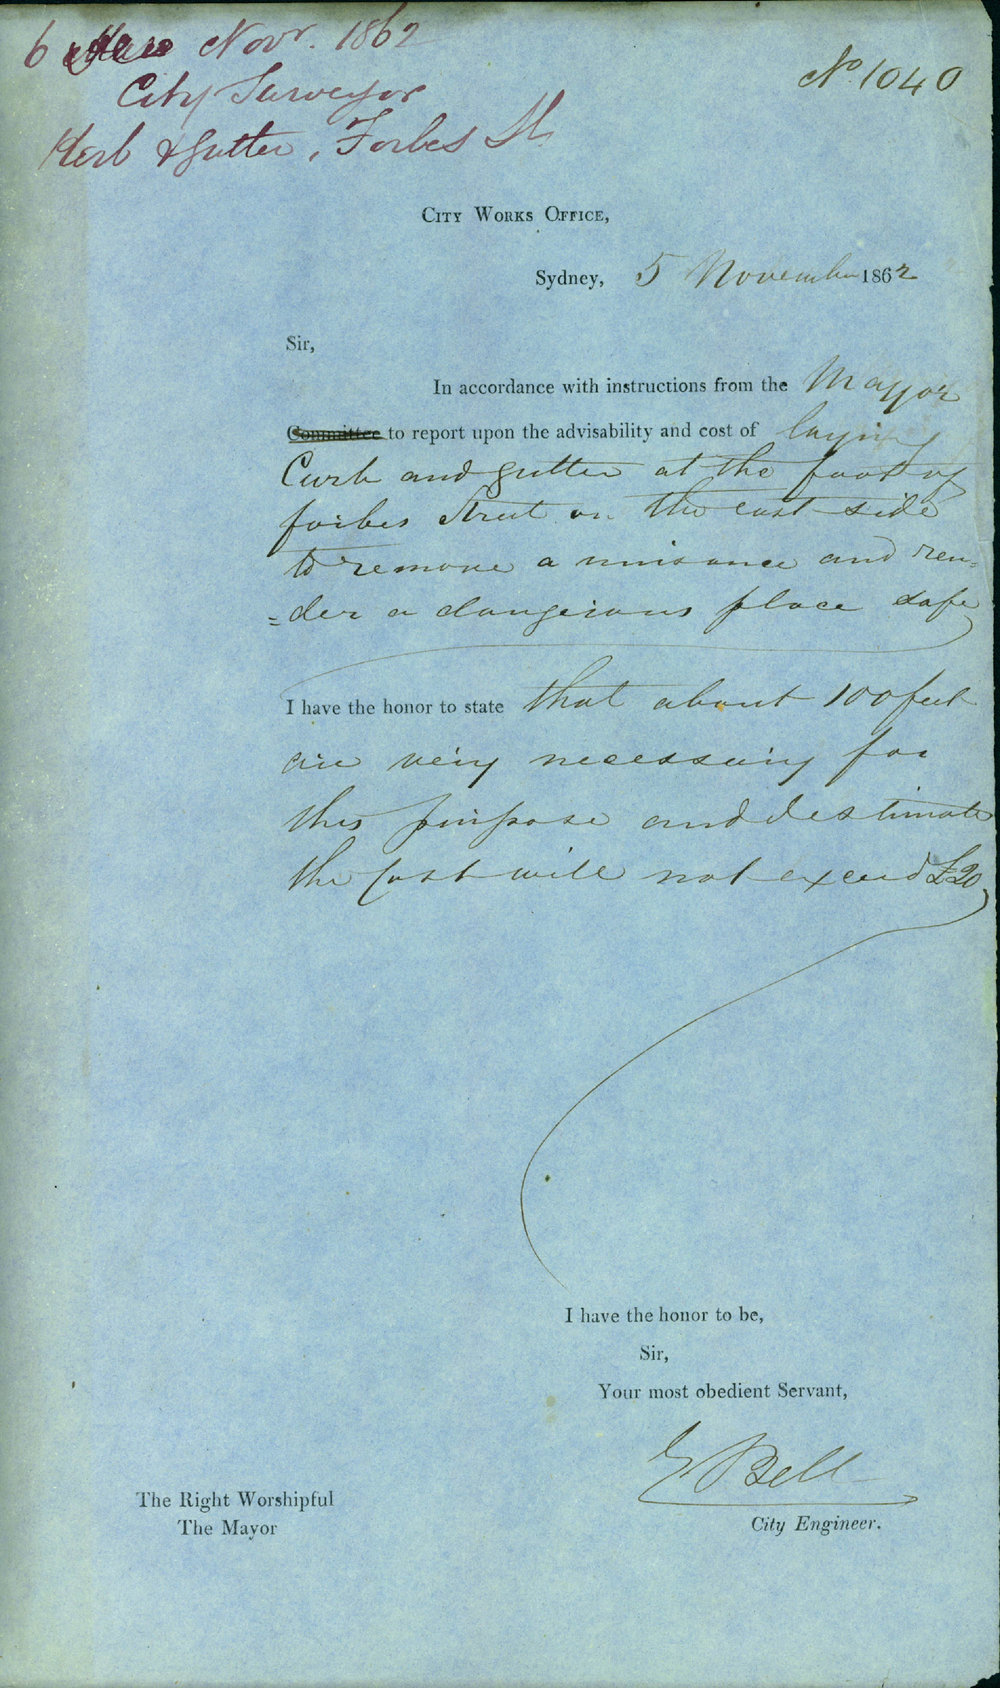 6 Novr. 1862
City Surveyor
Kerb & Gutter, Forbes St
No 1040
CITY WORKS OFFICE,
Sydney, 5 November 1862
Sir,
In accordance with instructions from the Mayor
Committee to report upon the advisability and cost of laying
Curb and gutter at the foot of
forbes Street on the east side
to remove a nuisance and ren-
=der a dangerous place safe
I have the honor to state that about 100 feet
are very necessary for
this purpose and I estimate
the cost will not exceed £20
I have the honor to be,
Sir,
Your most obedient Servant,
E Bell
City Engineer.
The Right Worshipful
The Mayor